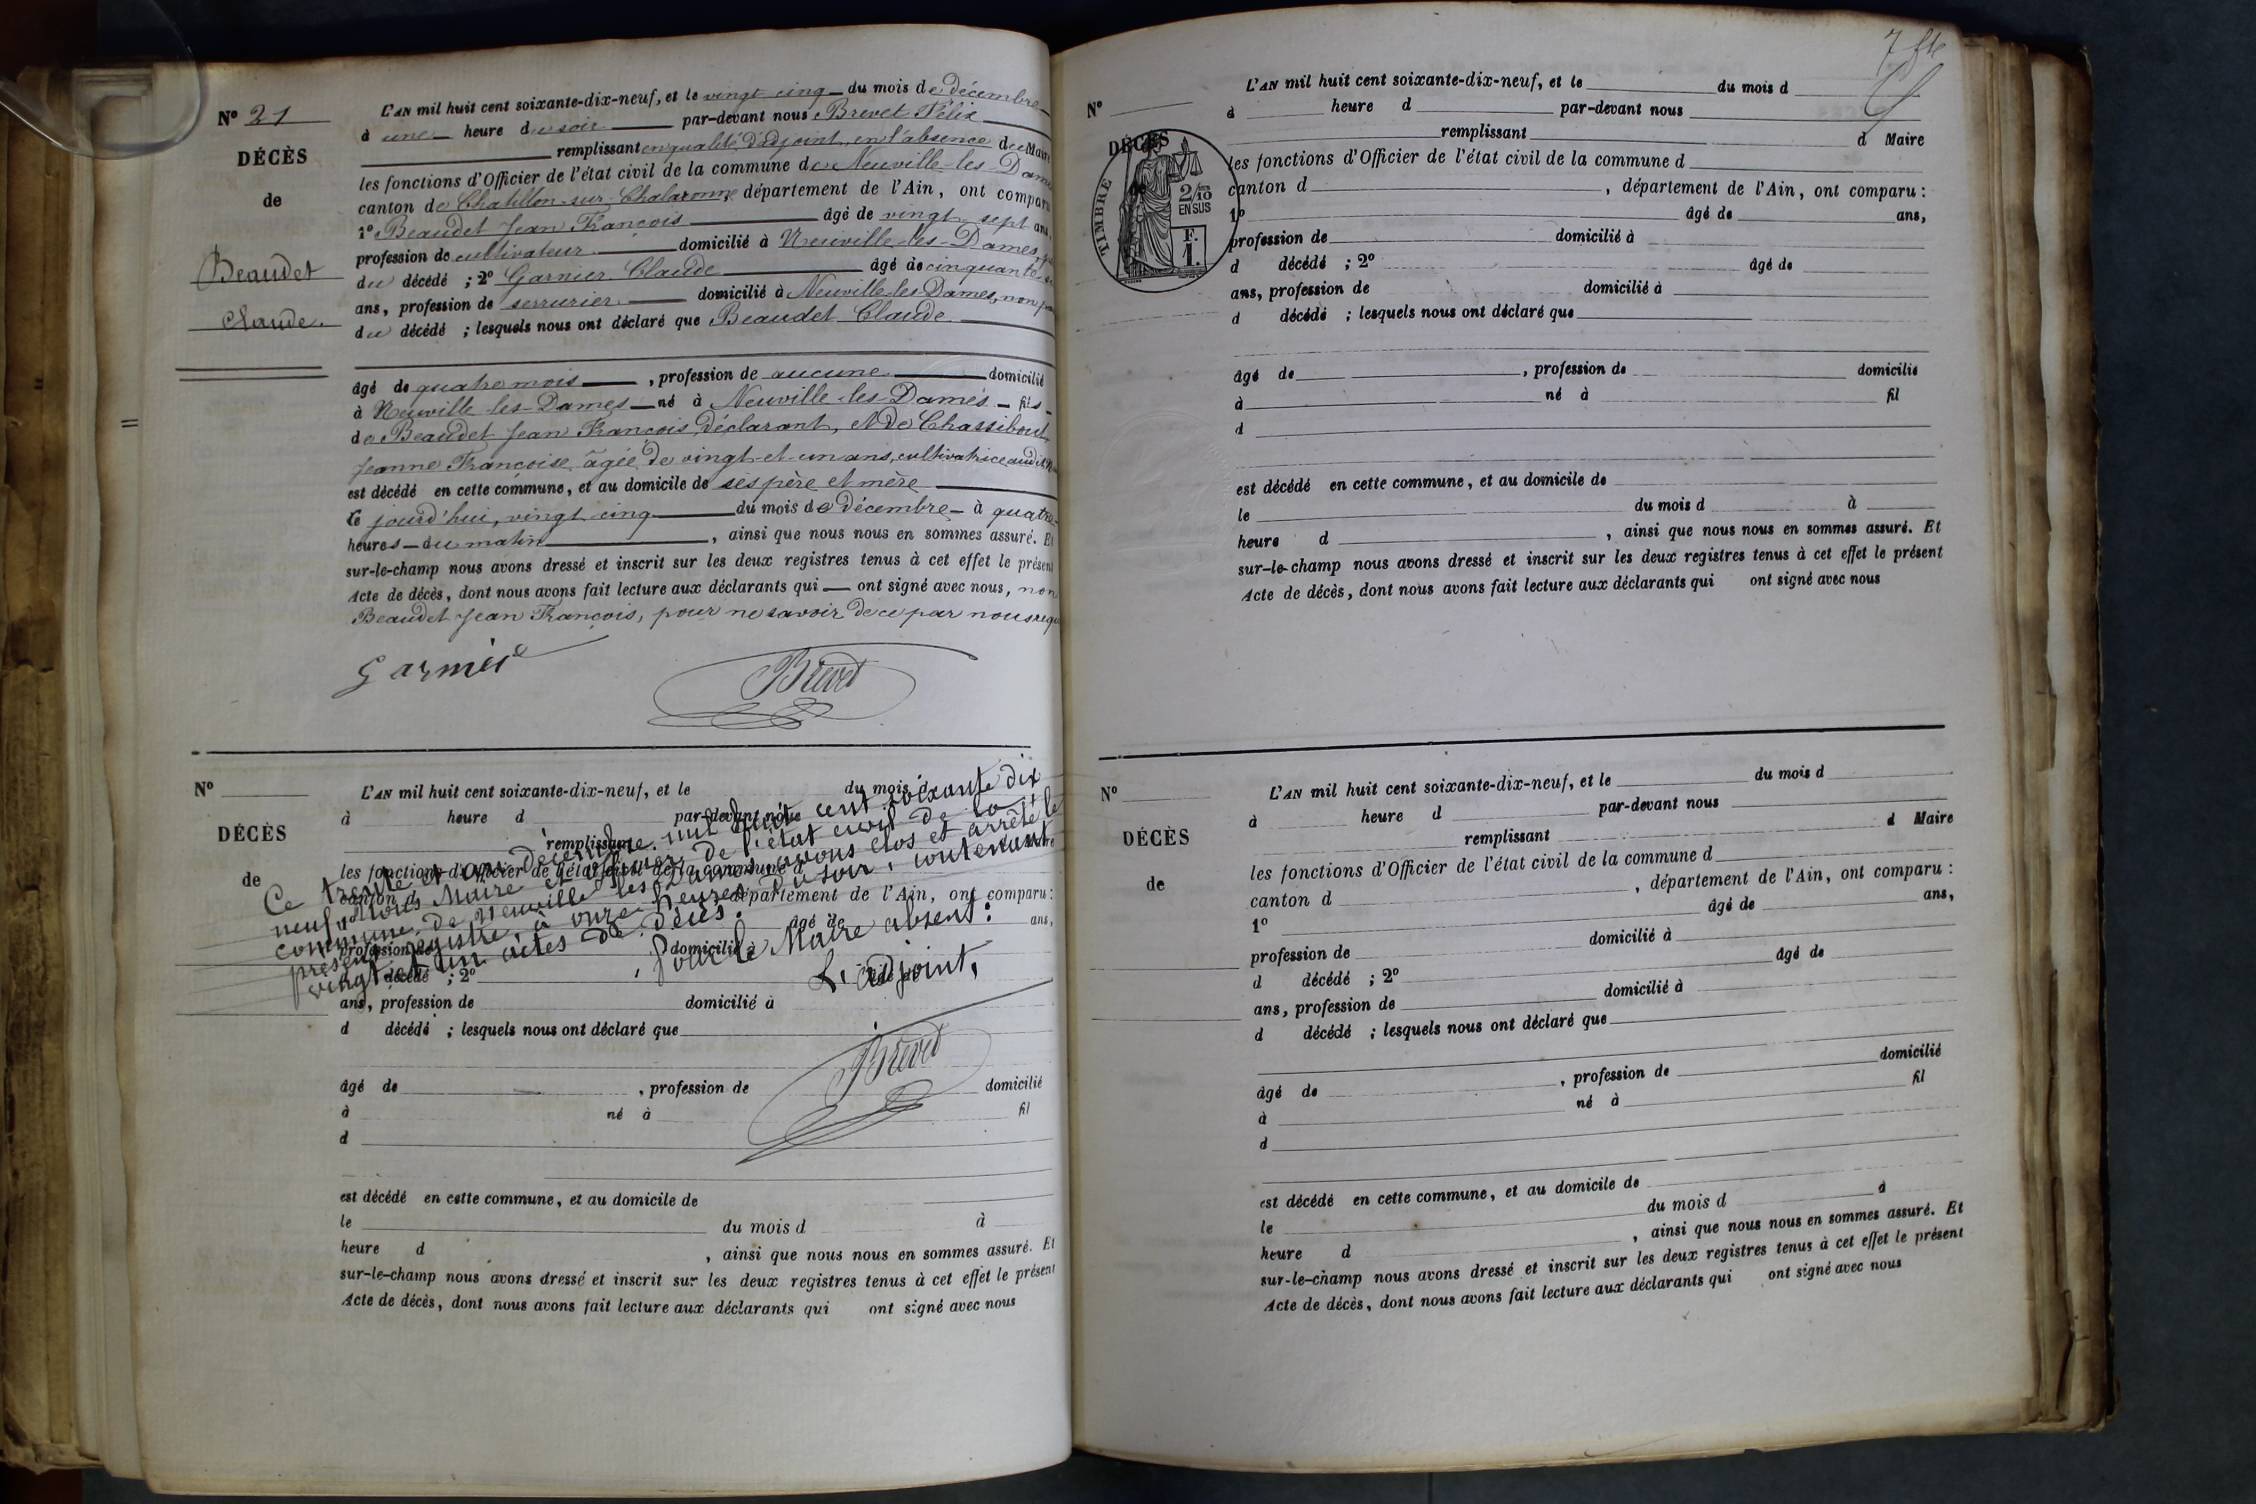 N° 21
DÉCÈS
de
Beaudet
Claude.
L'AN mil huit cent soixante-dix-neuf, et le vingt cinq du mois de décembre
à une heure du soir par-devant nous Brevet Félix
remplissant en qualité d'adjoint, en l'absence du Maire
les fonctions d'Officier de l'état civil de la commune de Neuville-les-Dames
canton de Chatillon-sur-Chalaronne, département de l'Ain, ont comparu
1° Beaudet Jean François âgé de vingt-sept ans,
profession de cultivateur domicilié à Neuville-les-Dames,
du décédé ; 2° Garnier Claude âgé de cinquante
ans, profession de serrurier domicilié à Neuville-les-Dames, non
du décédé ; lesquels nous ont déclaré que Beaudet Claude
âgé de quatre mois, profession de aucune domicilié
à Neuville-les-Dames né à Neuville-les-Dames fils
de Beaudet Jean François, déclarant, et de Chassibout
Jeanne Françoise, âgée de vingt-et-un ans, cultivatrice audit
est décédé en cette commune, et au domicile de ses père et mère
le jourd'hui, vingt cinq du mois de décembre à quatre
heures du matin, ainsi que nous nous en sommes assuré. Et
sur-le-champ nous avons dressé et inscrit sur les deux registres tenus à cet effet le présent
Acte de décès, dont nous avons fait lecture aux déclarants qui ont signé avec nous, non
Beaudet Jean François, pour ne savoir de ce par nous requis
Garnier
Brevet
N°
DÉCÈS
de
L'AN mil huit cent soixante-dix-neuf, et le du mois d
à heure d par-devant nous
remplissant
les fonctions d'Officier de l'état civil de la commune d
canton d département de l'Ain, ont comparu :
âgé de ans,
profession de domicilié à
décédé ; 2° âgé de
ans, profession de domicilié à
d décédé ; lesquels nous ont déclaré que
Ce trente et un décembre mil huit cent soixante dix
neuf, Nous Maire et officier de l'état civil de la
commune de Neuville les Dames, avons clos et arrêté le
présent registre, à onze heures du soir, contenant
vingt et un actes de décès.
Pour le Maire absent :
L'adjoint,
Brevet
âgé de , profession de domicilié
à né à fil
d
est décédé en cette commune, et au domicile de
le du mois d à
heure d , ainsi que nous nous en sommes assuré. Et
sur-le-champ nous avons dressé et inscrit sur les deux registres tenus à cet effet le présent
Acte de décès, dont nous avons fait lecture aux déclarants qui ont signé avec nous
7
N°
DÉCÈS
de
TIMBRE
2/10
EN SUS
F.
1.
L'AN mil huit cent soixante-dix-neuf, et le du mois d
à heure d par-devant nous
remplissant d Maire
les fonctions d'Officier de l'état civil de la commune d
canton d , département de l'Ain, ont comparu :
1° âgé de ans,
profession de domicilié à
d décédé ; 2° âgé de
ans, profession de domicilié à
d décédé ; lesquels nous ont déclaré que
âgé de , profession de domicilié
à né à fil
d
est décédé en cette commune, et au domicile de
le du mois d à
heure d , ainsi que nous nous en sommes assuré. Et
sur-le-champ nous avons dressé et inscrit sur les deux registres tenus à cet effet le présent
Acte de décès, dont nous avons fait lecture aux déclarants qui ont signé avec nous
N°
DÉCÈS
de
L'AN mil huit cent soixante-dix-neuf, et le du mois d
à heure d par-devant nous
remplissant d Maire
les fonctions d'Officier de l'état civil de la commune d
canton d , département de l'Ain, ont comparu :
1° âgé de ans,
profession de domicilié à
d décédé ; 2° âgé de
ans, profession de domicilié à
d décédé ; lesquels nous ont déclaré que
âgé de , profession de domicilié
à né à fil
d
est décédé en cette commune, et au domicile de
le du mois d à
heure d , ainsi que nous nous en sommes assuré. Et
sur-le-champ nous avons dressé et inscrit sur les deux registres tenus à cet effet le présent
Acte de décès, dont nous avons fait lecture aux déclarants qui ont signé avec nous